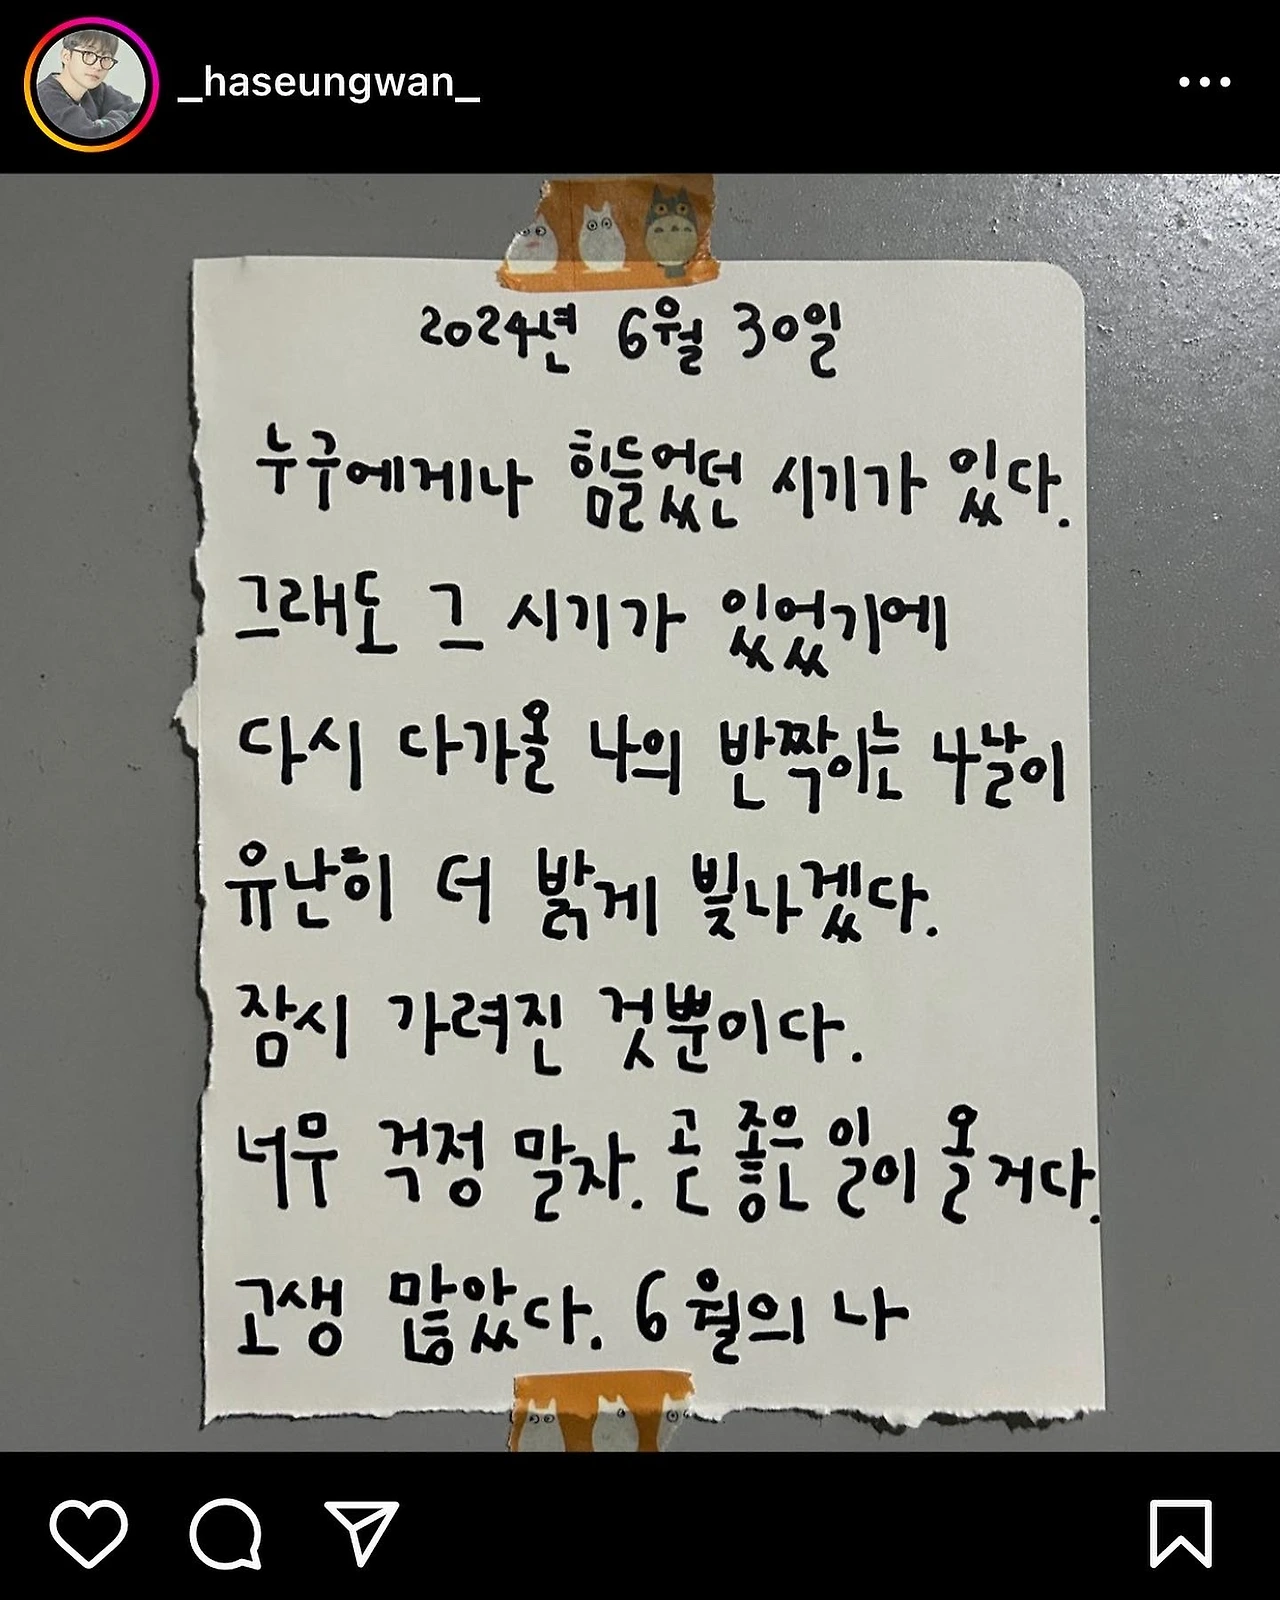 _haseungwan_
2024년 6월 30일
누구에게나 힘들었던 시기가 있다.
그래도 그 시기가 있었기에
다시 다가올 나의 반짝이는 나날이
유난히 더 밝게 빛나겠다.
잠시 가려진 것뿐이다.
너무 걱정 말자. 곧 좋은 일이 올 거다.
고생 많았다. 6월의 나